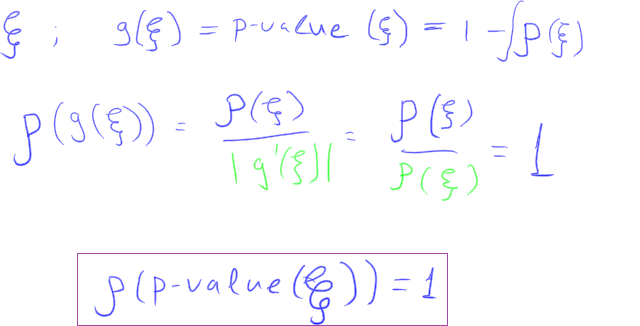 ξ ; g(ξ) = p-value (ξ) = 1 - ∫ρ(ξ)
ρ(g(ξ)) = ρ(ξ) / |g'(ξ)| = ρ(ξ) / ρ(ξ) = 1
ρ(p-value(ξ)) = 1